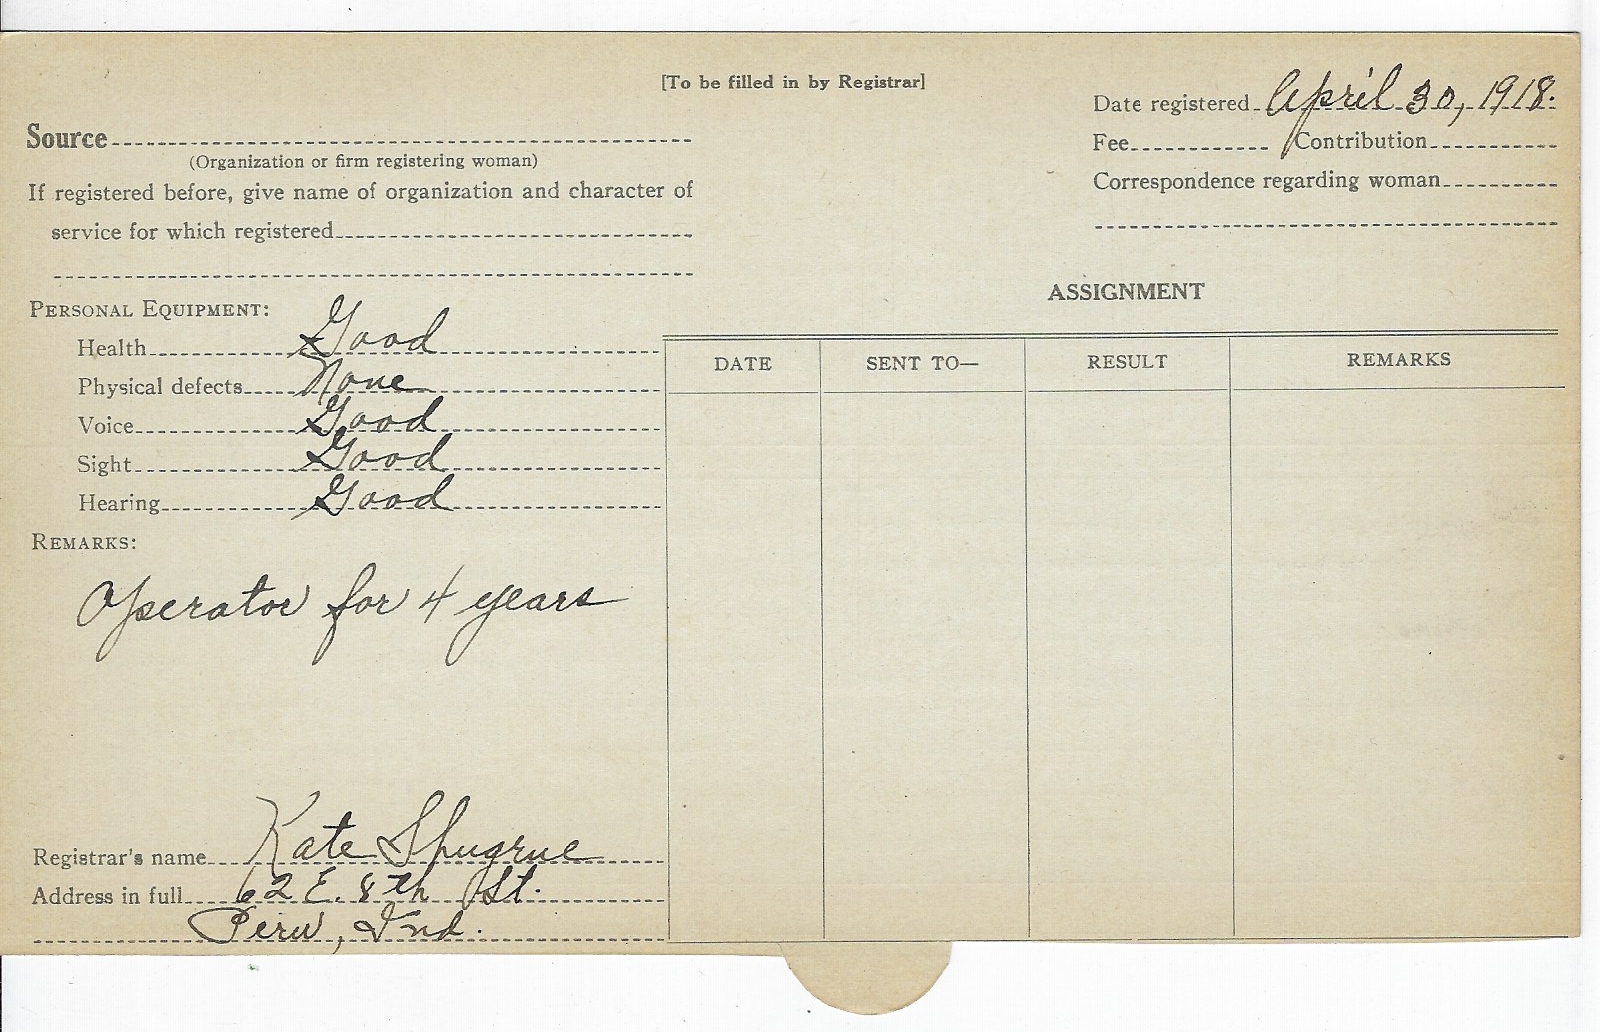 [To be filled in by Registrar]
Date registered April 30, 1918.
Source
(Organization or firm registering woman)
Fee Contribution
If registered before, give name of organization and character of
service for which registered
Correspondence regarding woman
PERSONAL EQUIPMENT:
Health Good
Physical defects None
Voice Good
Sight Good
Hearing Good
REMARKS:
Operator for 4 years
Registrar's name Kate Shugrue
Address in full 62 E. 8th St.
Peru, Ind.
ASSIGNMENT
DATE SENT TO— RESULT REMARKS